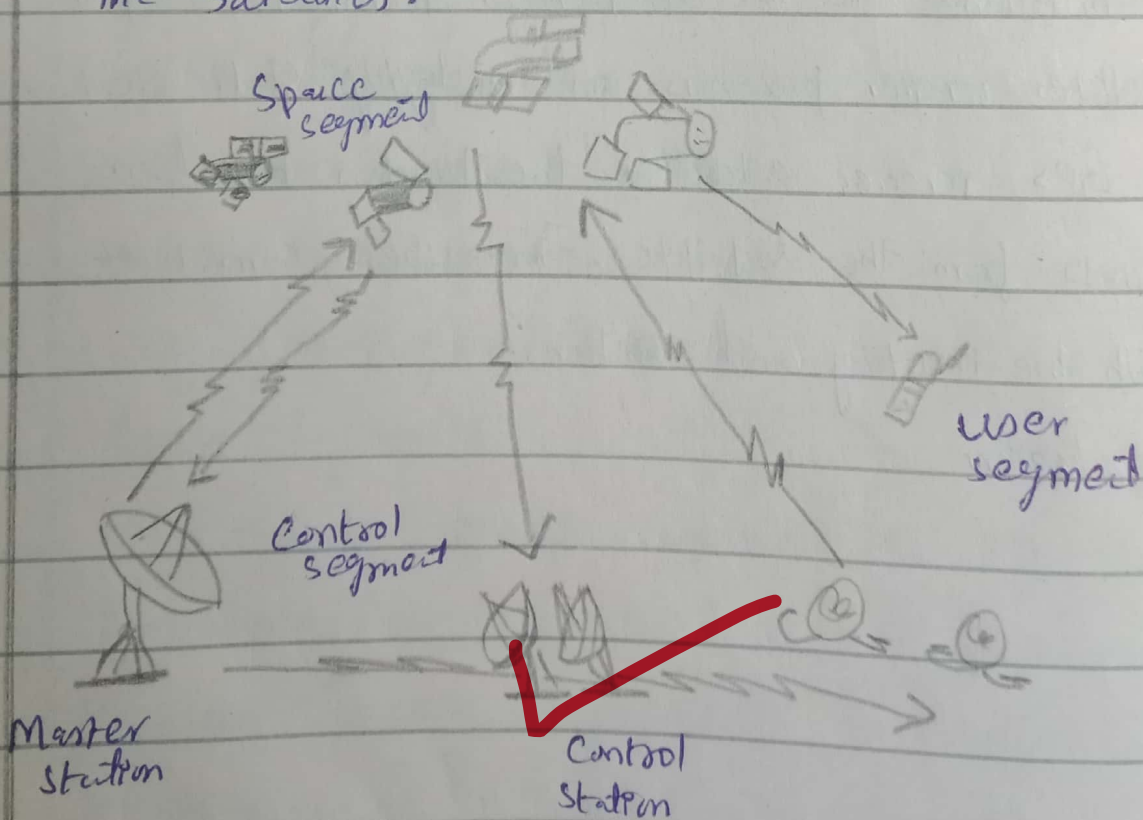 the satellites.
Space
segment
user
segment
Control
segment
Master
station
Control
station